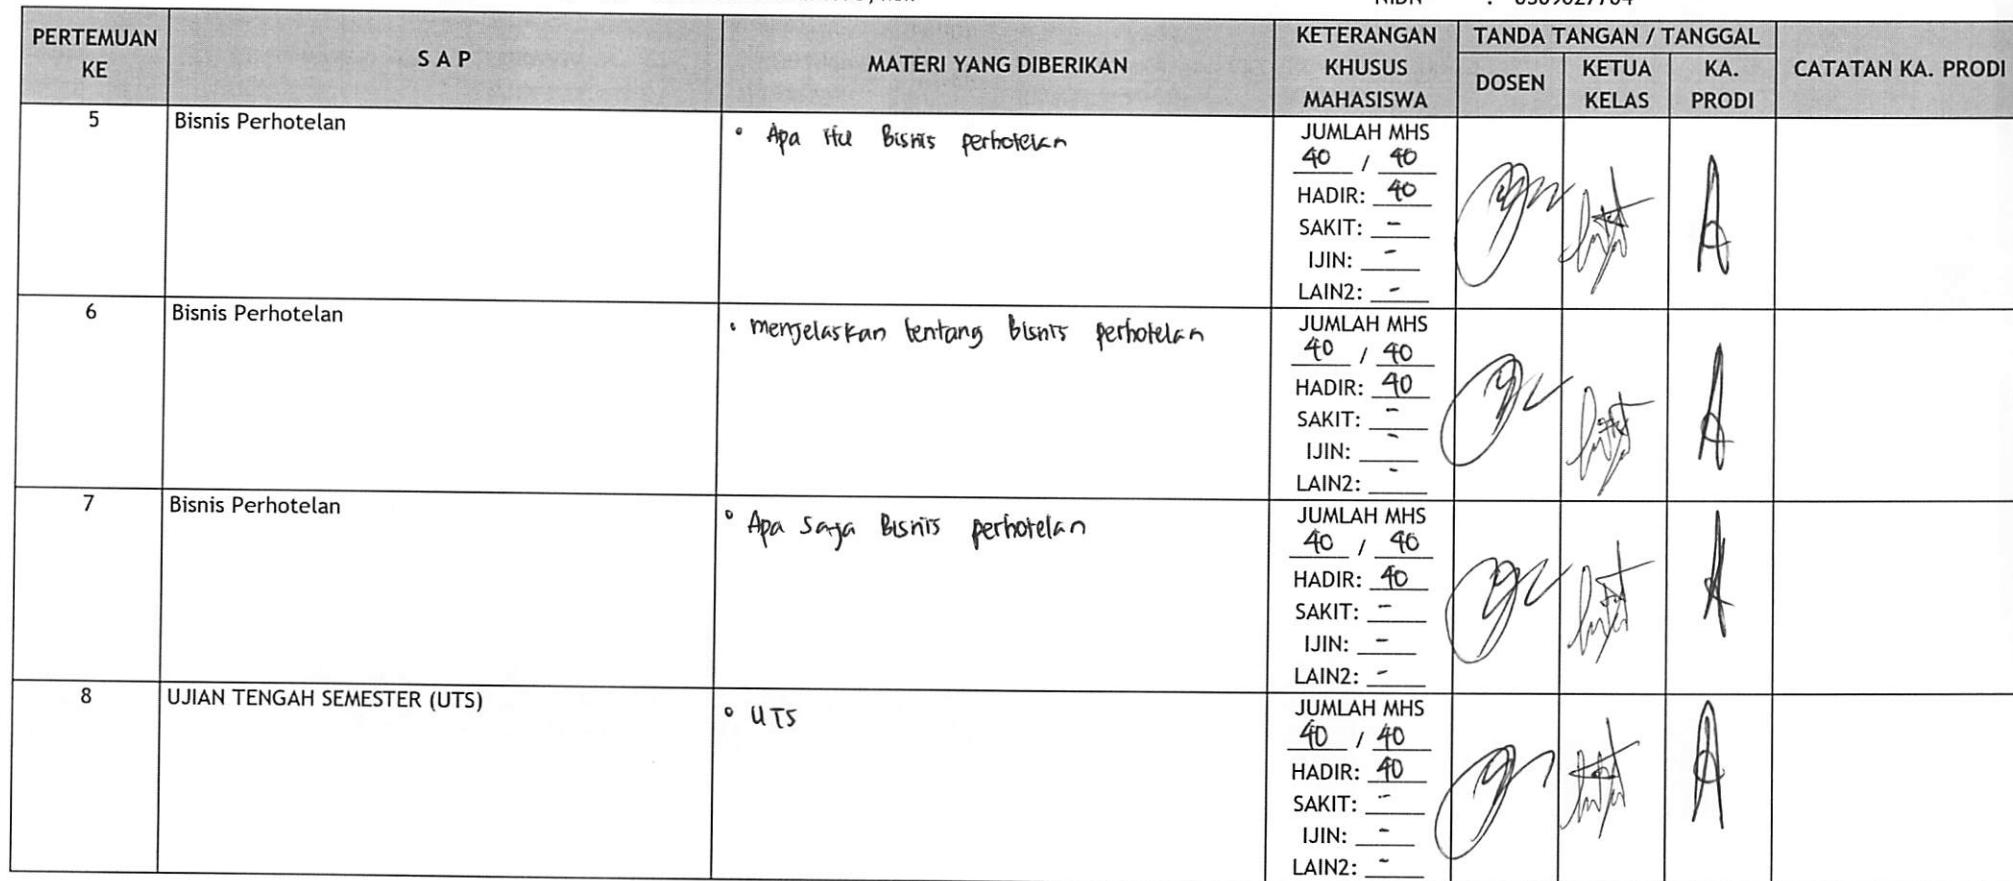 NIDN :
PERTEMUAN KE | S A P | MATERI YANG DIBERIKAN | KETERANGAN KHUSUS MAHASISWA | TANDA TANGAN / TANGGAL | CATATAN KA. PRODI
DOSEN | KETUA KELAS | KA. PRODI
5 | Bisnis Perhotelan | • Apa itu Bisnis perhotelan
JUMLAH MHS
40 / 40
HADIR: 40
SAKIT: -
IJIN: -
LAIN2: -
6 | Bisnis Perhotelan | • menjelaskan tentang bisnis perhotelan
JUMLAH MHS
40 / 40
HADIR: 40
SAKIT: -
IJIN: -
LAIN2: -
7 | Bisnis Perhotelan | • Apa saja Bisnis perhotelan
JUMLAH MHS
40 / 40
HADIR: 40
SAKIT: -
IJIN: -
LAIN2: -
8 | UJIAN TENGAH SEMESTER (UTS) | • UTS
JUMLAH MHS
40 / 40
HADIR: 40
SAKIT: -
IJIN: -
LAIN2: -